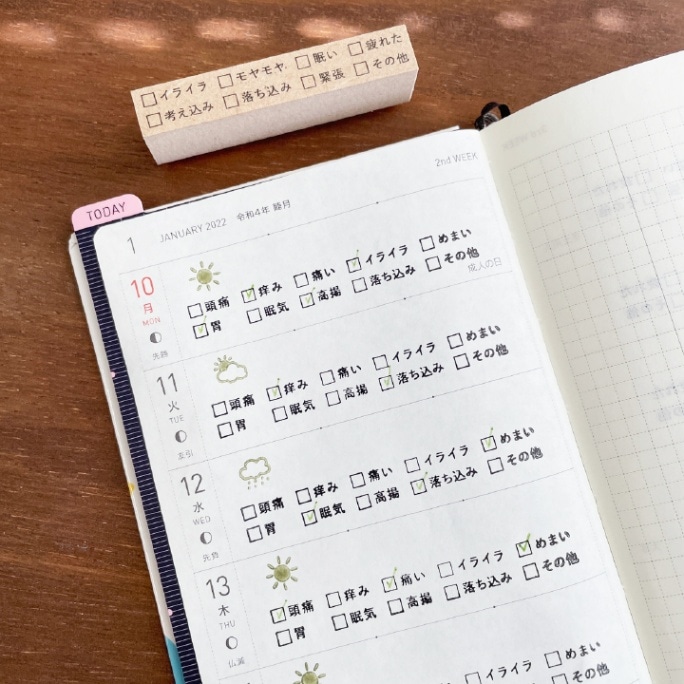 □イライラ □モヤモヤ □眠い □疲れた
□考え込み □落ち込み □緊張 □その他
TODAY
2nd WEEK
1 JANUARY 2022 令和4年 睦月
10
月
MON
先勝
□頭痛 ☑痒み □痛い ☑イライラ □めまい
☑胃 □眠気 ☑高揚 □落ち込み □その他
成人の日
11
火
TUE
友引
□頭痛 ☑痒み □痛い □イライラ □めまい
□胃 □眠気 □高揚 ☑落ち込み □その他
12
水
WED
先負
□頭痛 □痒み □痛い □イライラ ☑めまい
□胃 ☑眠気 □高揚 ☑落ち込み □その他
13
木
THU
仏滅
☑頭痛 □痒み ☑痛い □イライラ ☑めまい
□胃 □眠気 □高揚 □落ち込み □その他
□イライラ □めまい
□その他